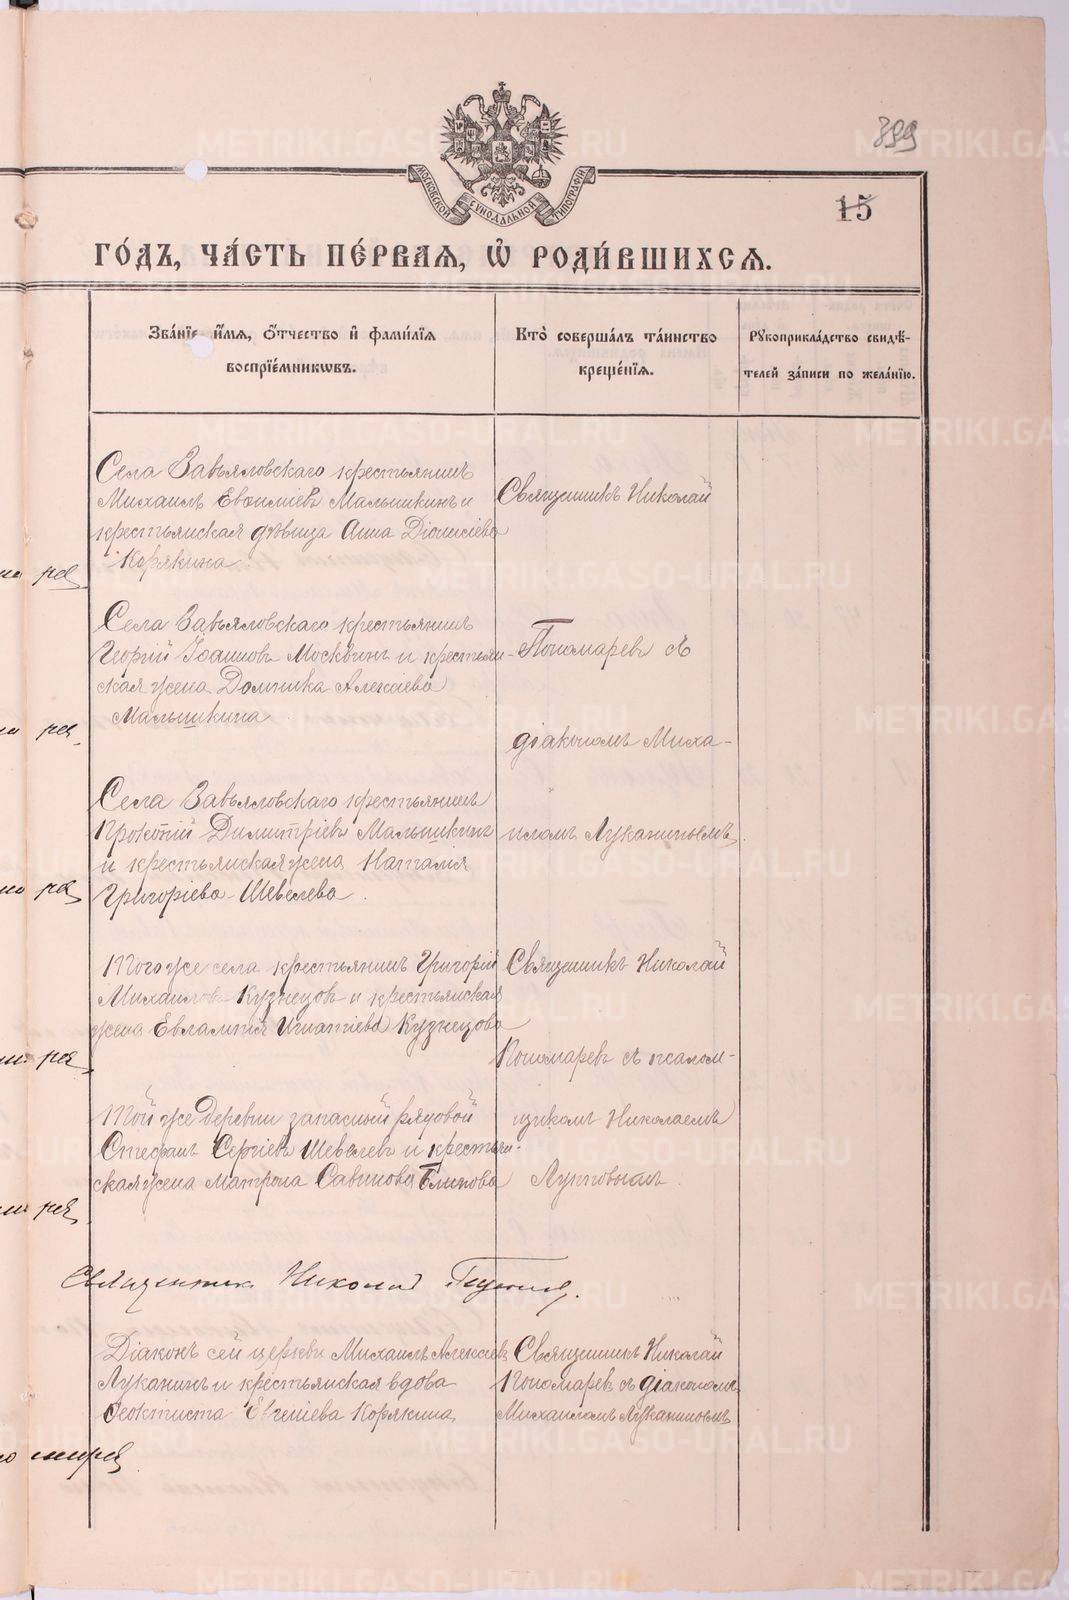 399
15
МОСКОВСКОЙ СУНОДАЛЬНОЙ ТИПОГРАФІИ
ГО́ДЪ, ЧА́СТЬ ПЕ́РВАѦ, Ѡ҆ РОДИ́ВШИХСѦ.
Зва́нїе и҆́мѧ, ѻ҆́тчество и҆ фами́лїѧ
воспрїе́мникѡвъ.
Кто̀ соверша́лъ та́инство
креще́нїѧ.
Рꙋкоприкла́дство свидѣ́-
телей за́писи по жела́нїю.
Села Завьяловскаго крестьянинъ
Михаилъ Евѳиміевъ Малышкинъ и
крестьянская дѣвица Анна Діонисіева
Корякина.
Священникъ Николай
Села Завьяловскаго крестьянинъ
Георгій Іоанновъ Москвинъ и крестьян-
ская жена Домника Алексіева
Малышкина
Пономаревъ съ
діакономъ Миха-
Села Завьяловскаго крестьянинъ
Прокопій Димитріевъ Малышкинъ
и крестьянская жена Наталія
Григоріева Шевелева.
иломъ Луканинымъ.
Того же села крестьянинъ Григорій
Михаиловъ Кузнецовъ и крестьянская
жена Евлампія Игнатіева Кузнецова
Священникъ Николай
Пономаревъ съ псалом-
Той же деревни запасный рядовой
Стефанъ Сергіевъ Шевелевъ и крестьян-
ская жена Матрона Савинова Блинова
щикомъ Николаемъ
Священник Николай
Діаконъ сей церкви Михаилъ Алексіевъ
Луканинъ и крестьянская вдова
Ѳеоктиста Евгеніева Корякина
Священникъ Николай
Пономаревъ съ діакономъ
Михаиломъ Луканинымъ
METRIKI.GASO-URAL.RU